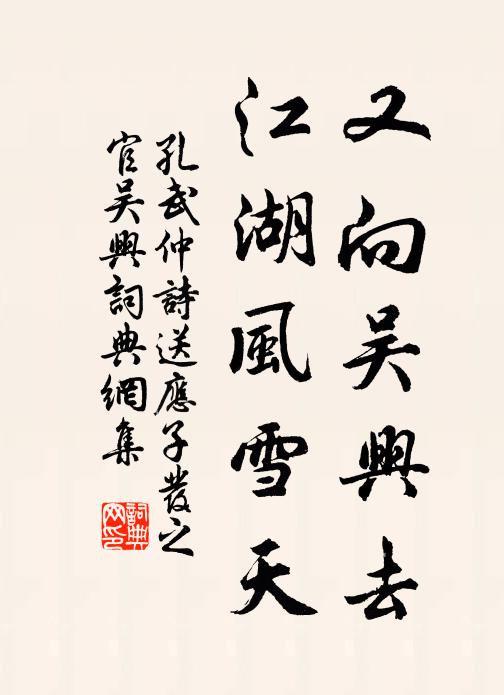 又向吴興去
江湖風雪天
孔武仲詩送應子發之
官吴興詞典網集
詞典
网印